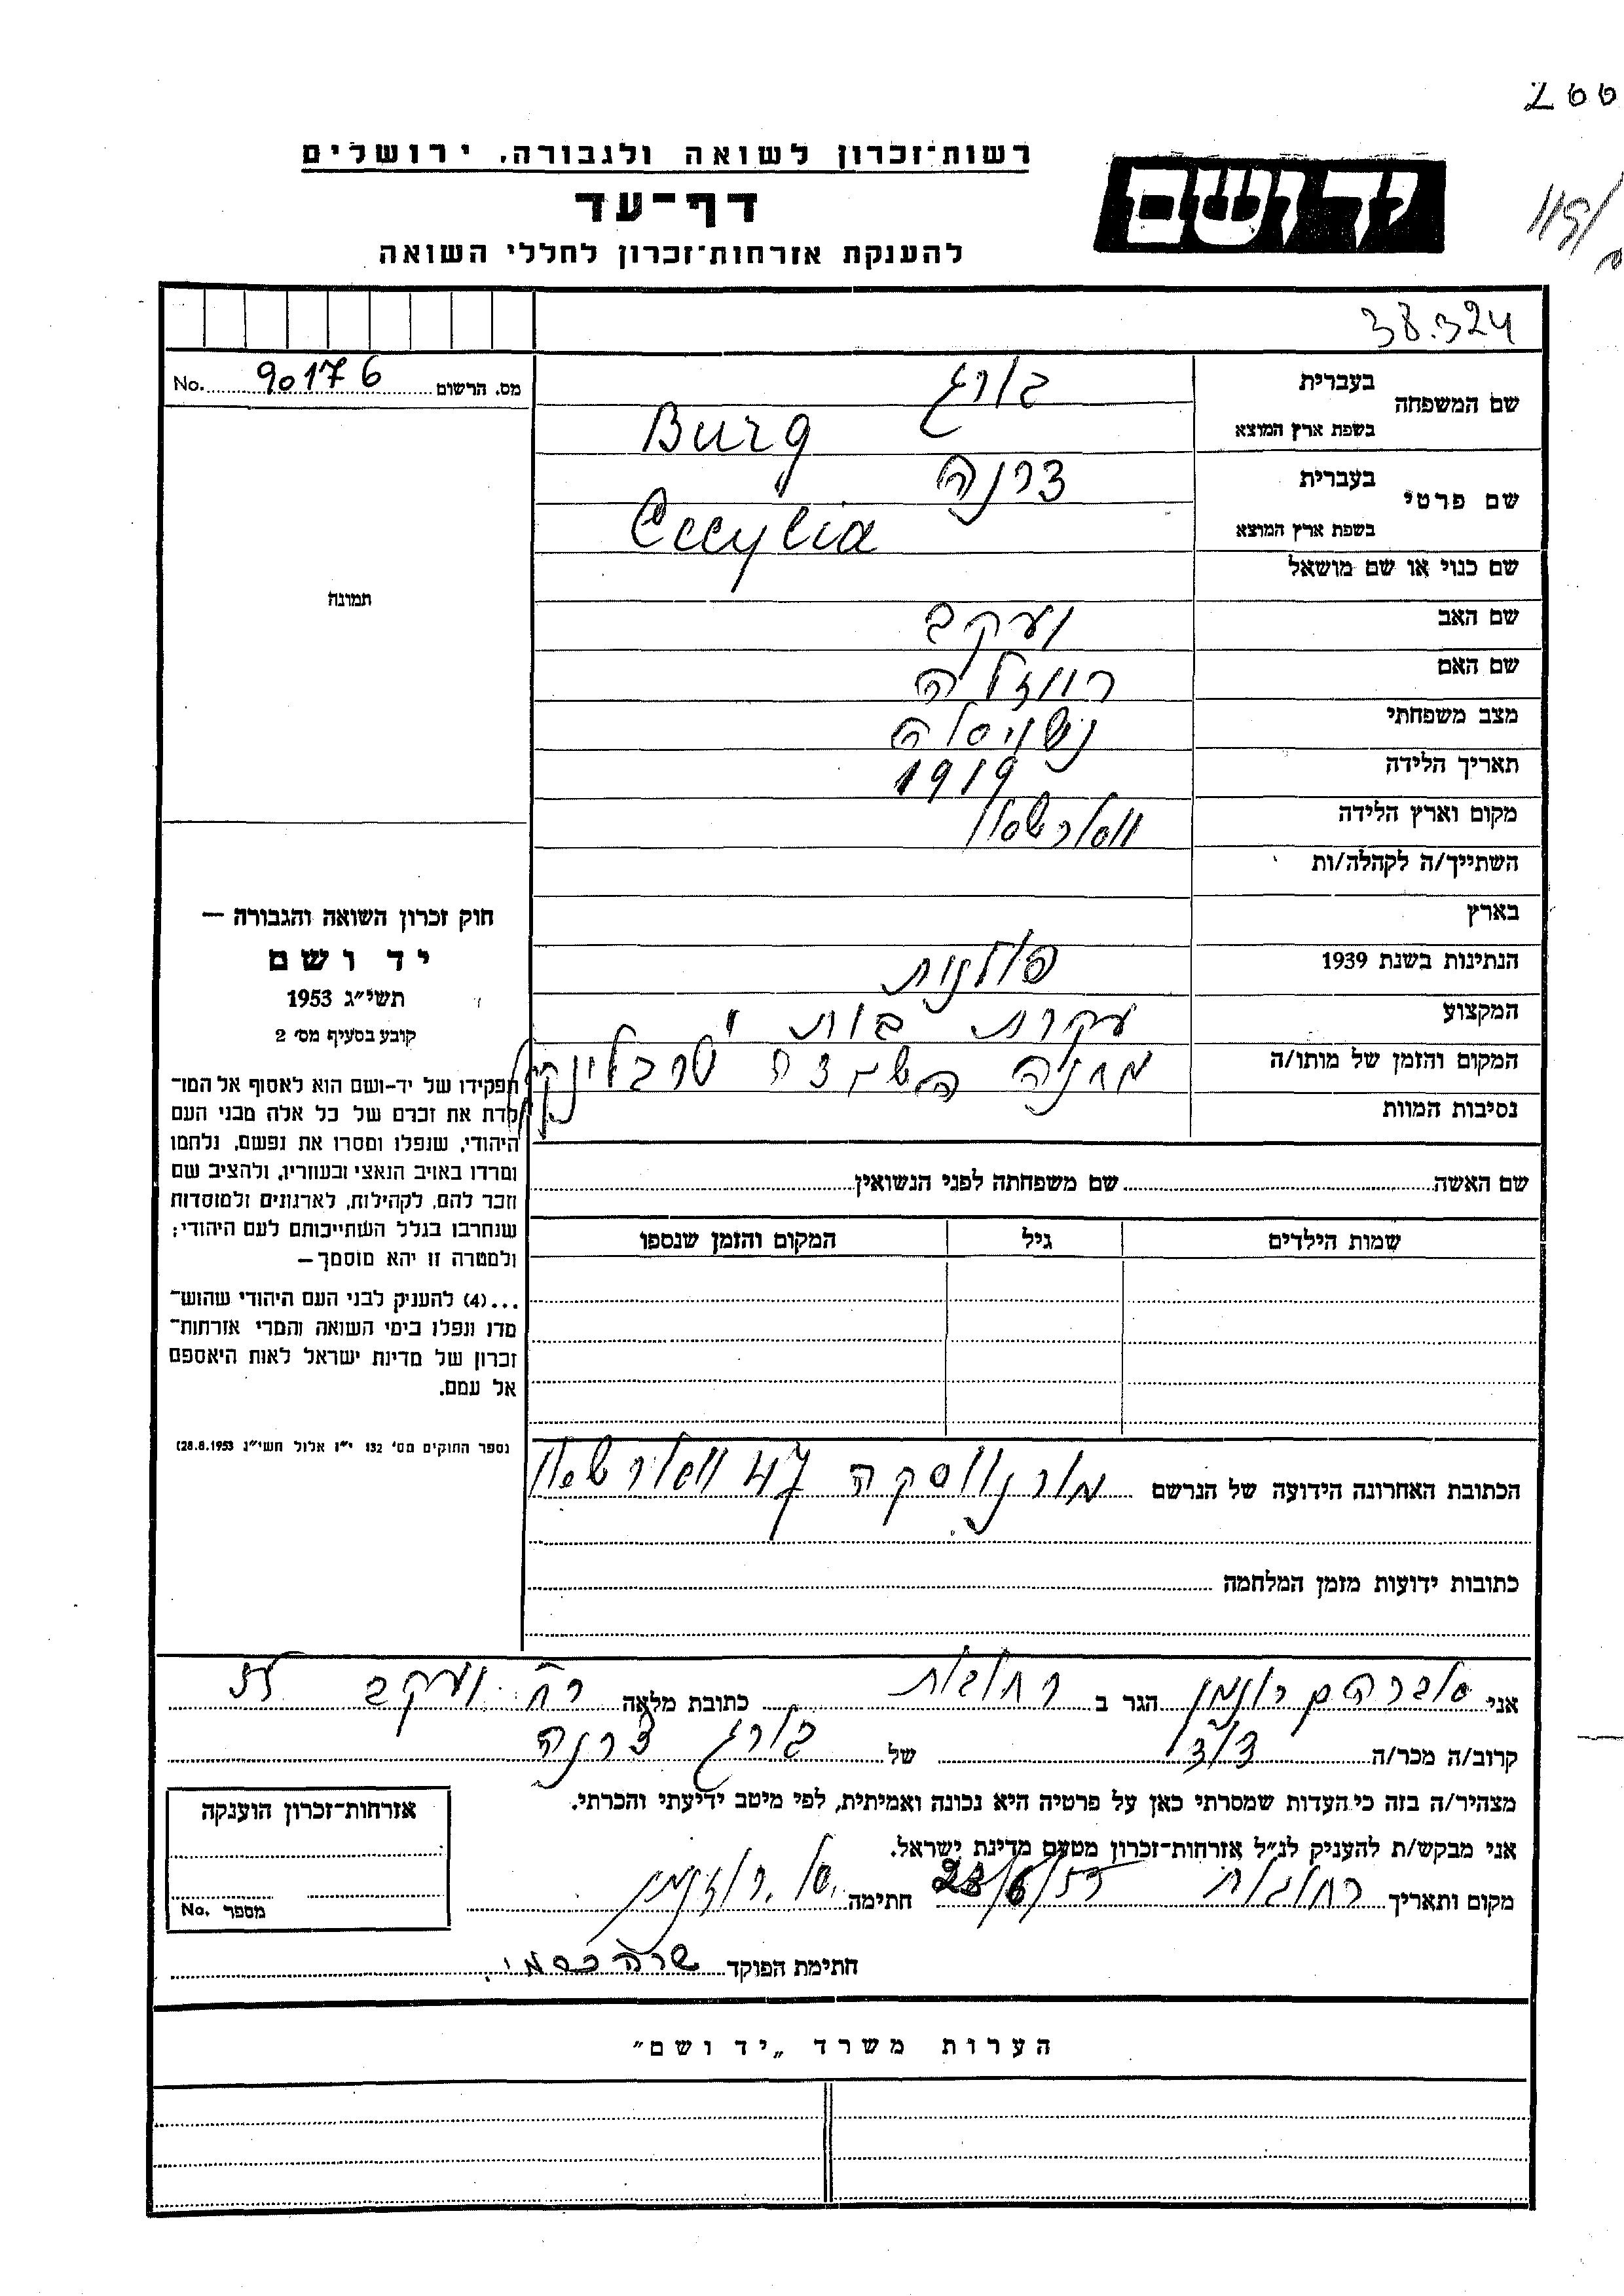 266
רשות־זכרון לשואה ולגבורה, ירושלים
יד ושם
דף־עד
להענקת אזרחות־זכרון לחללי השואה
38.324
מס. הרשום 90176 No.
שם המשפחה
בעברית בורג
בשפת ארץ המוצא Burg
שם פרטי
בעברית צרנה
בשפת ארץ המוצא Cecylia
שם כנוי או שם מושאל
שם האב יעקב
שם האם רוזליה
מצב משפחתי נשואה
תאריך הלידה 1919
מקום וארץ הלידה ווארשא
השתייך/ה לקהלה/ות
בארץ
הנתינות בשנת 1939 פולנית
המקצוע עקרת בית
המקום והזמן של מותו/ה מחנה השמדה טרבלינקה
נסיבות המוות
תמונה
חוק זכרון השואה והגבורה —
יד ושם
תשי״ג 1953
קובע בסעיף מס׳ 2
תפקידו של יד-ושם הוא לאסוף אל המו־
לדת את זכרם של כל אלה מבני העם
היהודי, שנפלו ומסרו את נפשם, נלחמו
ומרדו באויב הנאצי ובעוזריו, ולהציב שם
וזכר להם, לקהילות, לארגונים ולמוסדות
שנחרבו בגלל השתייכותם לעם היהודי;
ולמטרה זו יהא מוסמך—
...(4) להעניק לבני העם היהודי שהוש־
מדו ונפלו בימי השואה והמרי אזרחות־
זכרון של מדינת ישראל לאות היאספם
אל עמם.
(ספר החוקים מס׳ 132 י״ז אלול תשי״ג 28.8.1953)
שם האשה שם משפחתה לפני הנשואין
שמות הילדים גיל המקום והזמן שנספו
הכתובת האחרונה הידועה של הנרשם 47 ווארשא
כתובות ידועות מזמן המלחמה
אני אברהם הגר ב רחובות כתובת מלאה רח יעקב
קרוב/ה מכר/ה של בורג צרנה
מצהיר/ה בזה כי העדות שמסרתי כאן על פרטיה היא נכונה ואמיתית, לפי מיטב ידיעתי והכרתי.
אני מבקש/ת להעניק לנ״ל אזרחות־זכרון מטעם מדינת ישראל.
מקום ותאריך רחובות חתימה
חתימת הפוקד שרה
אזרחות־זכרון הוענקה
מספר No.
הערות משרד „יד ושם״